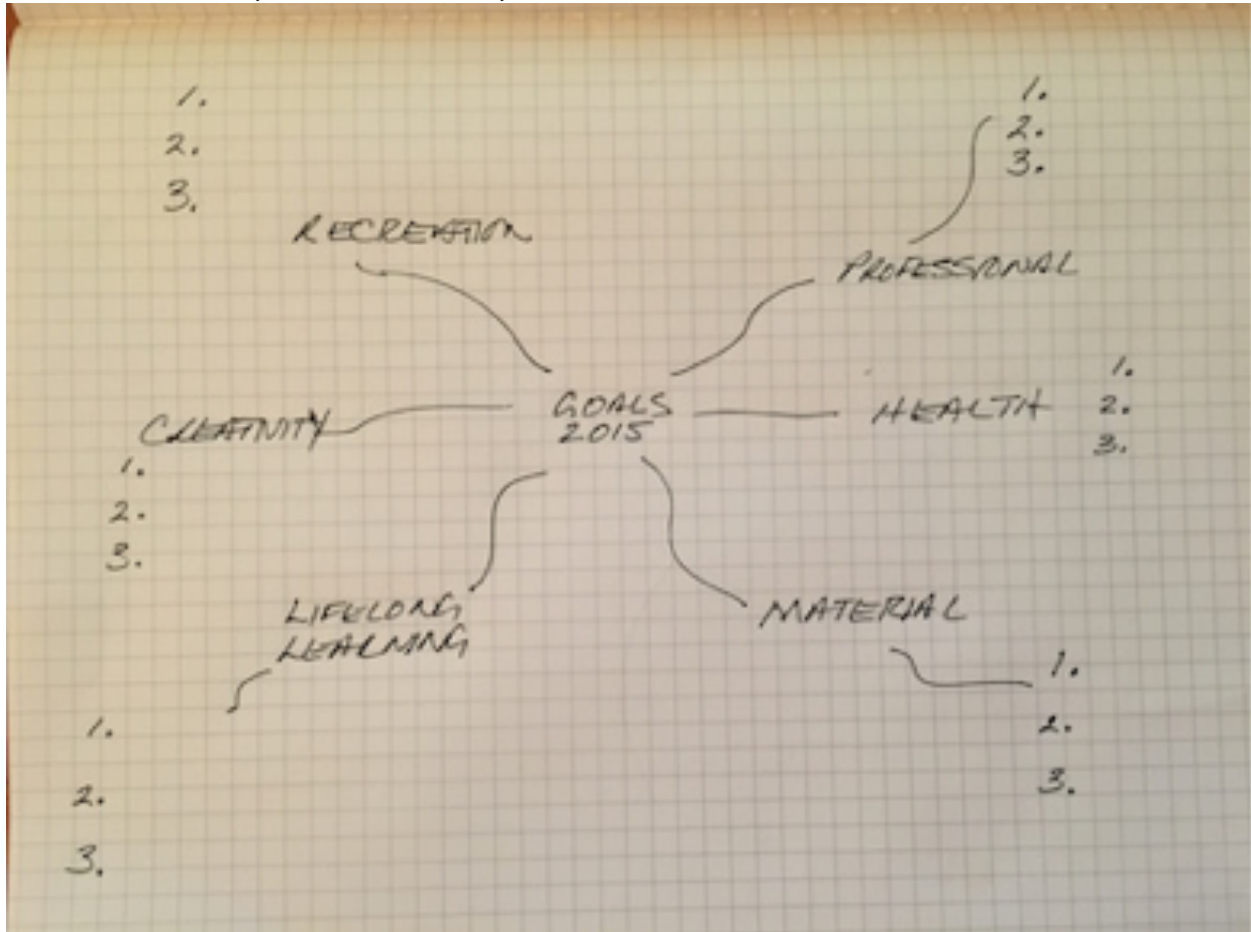 1.
2.
3.
RECREATION
1.
2.
3.
PROFESSIONAL
GOALS
2015
CREATIVITY
1.
2.
3.
HEALTH
1.
2.
3.
LIFELONG
LEARNING
1.
2.
3.
MATERIAL
1.
2.
3.